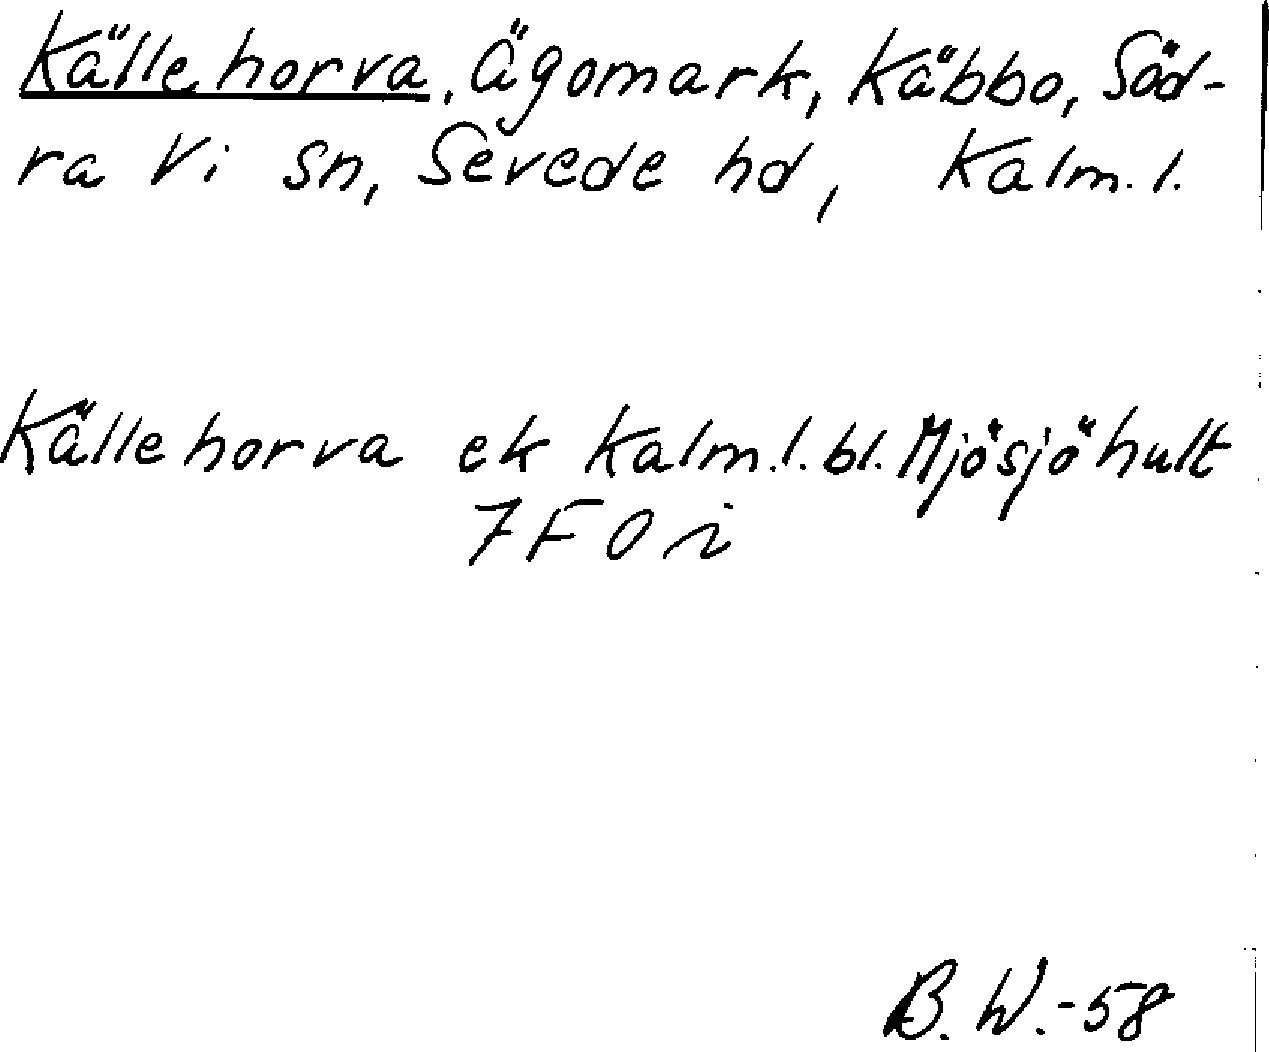 Källehorva, Ägomark, Käbbo, Söd-
ra Vi sn, Sevede hd, Kalm.l.
Källehorva ek Kalm.l.bl. Mjösjöhult
7F0i
B.W.-58